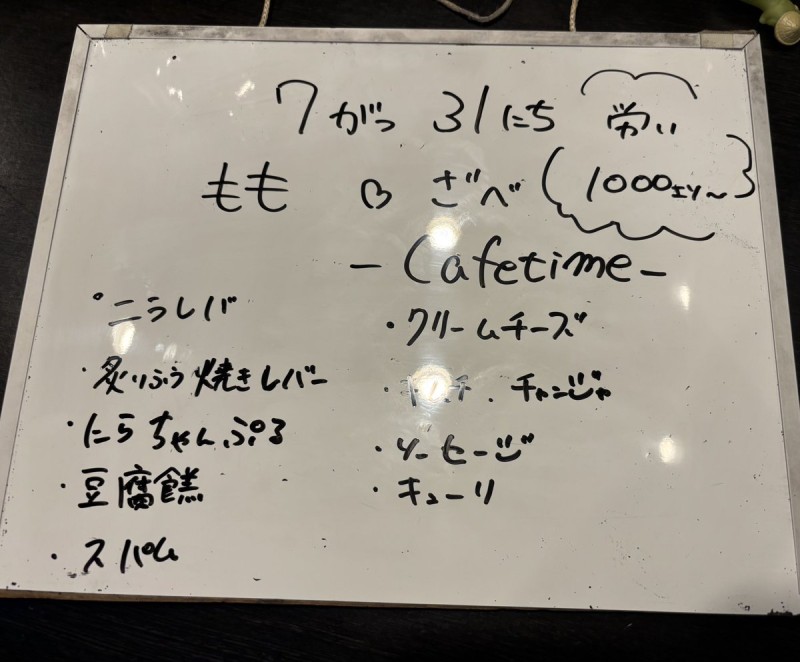 7がつ 31にち 労い
もも ♡ ざべ (1000エソ～)
-Cafetime-
・ニラレバ
・炙りふう焼きレバー
・にらちゃんぷる
・豆腐餻
・スパム
・クリームチーズ
・キムチ、チャンジャ
・ソーセージ
・キューリ